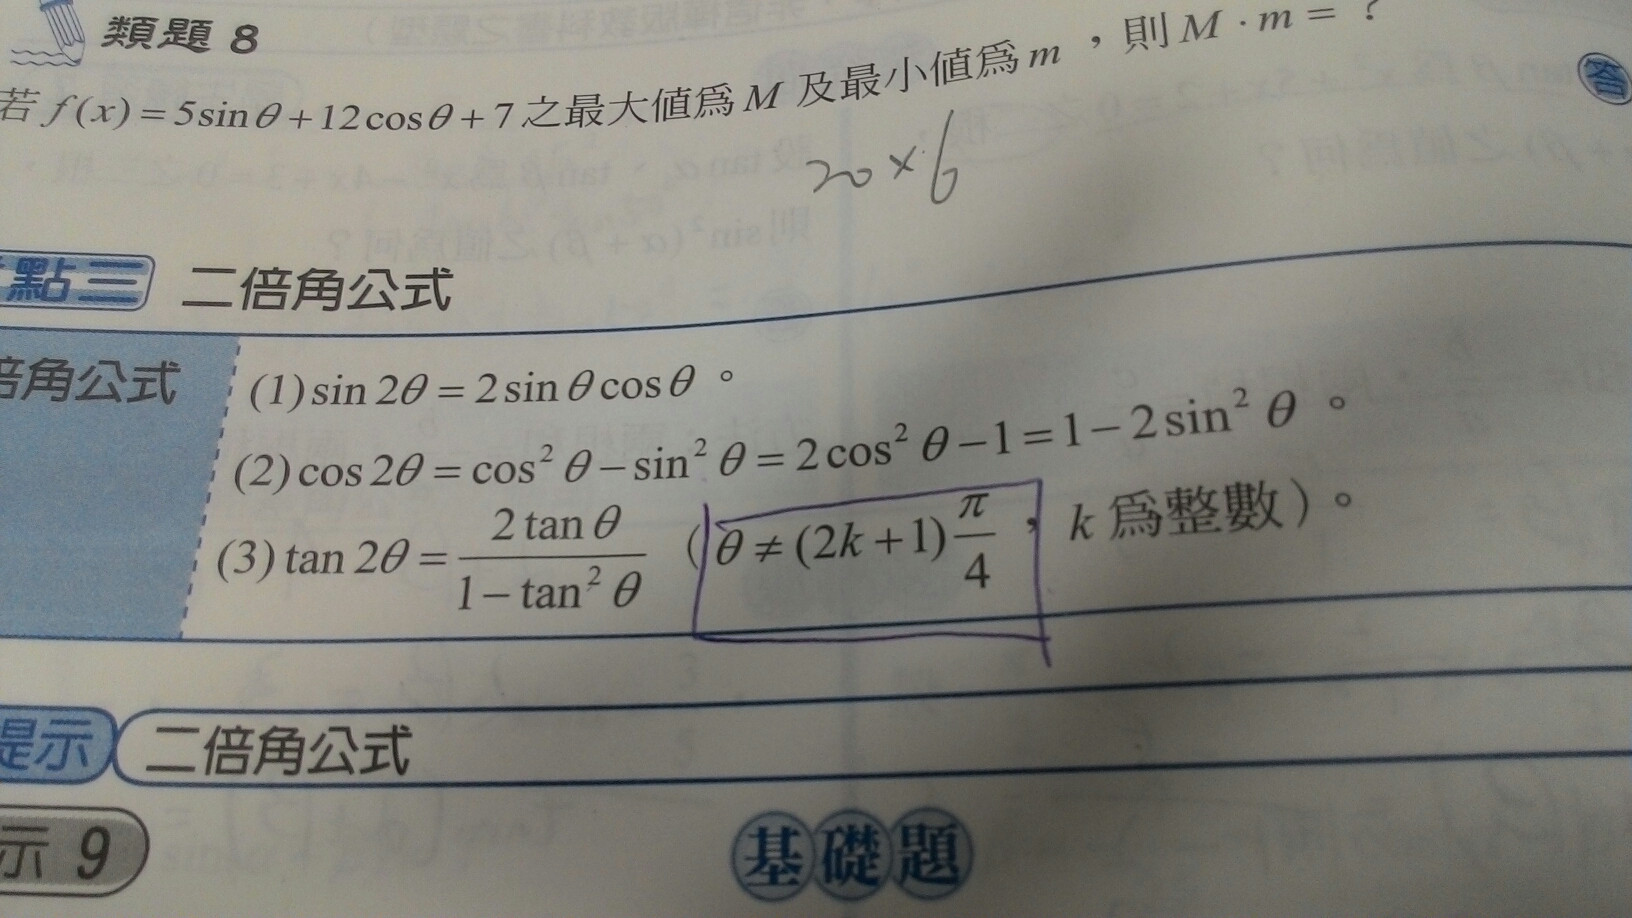 類題 8
若 f(x) = 5sinθ + 12cosθ + 7 之最大值爲 M 及最小值爲 m ，則 M · m = ？
答
20 × 6
點三 二倍角公式
倍角公式
(1) sin 2θ = 2 sin θ cos θ 。
(2) cos 2θ = cos² θ − sin² θ = 2 cos² θ − 1 = 1 − 2 sin² θ 。
(3) tan 2θ = 2 tan θ / 1 − tan² θ （θ ≠ (2k + 1) π/4 ，k 爲整數）。
提示 二倍角公式
示 9
基礎題